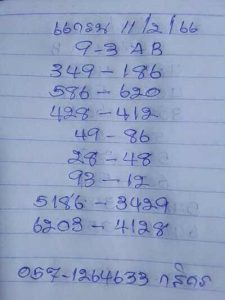 11/2/66
9-3 AB
349-186
586-620
428-412
49-86
28-48
93-12
5186-3429
6203-4128
057-1264633